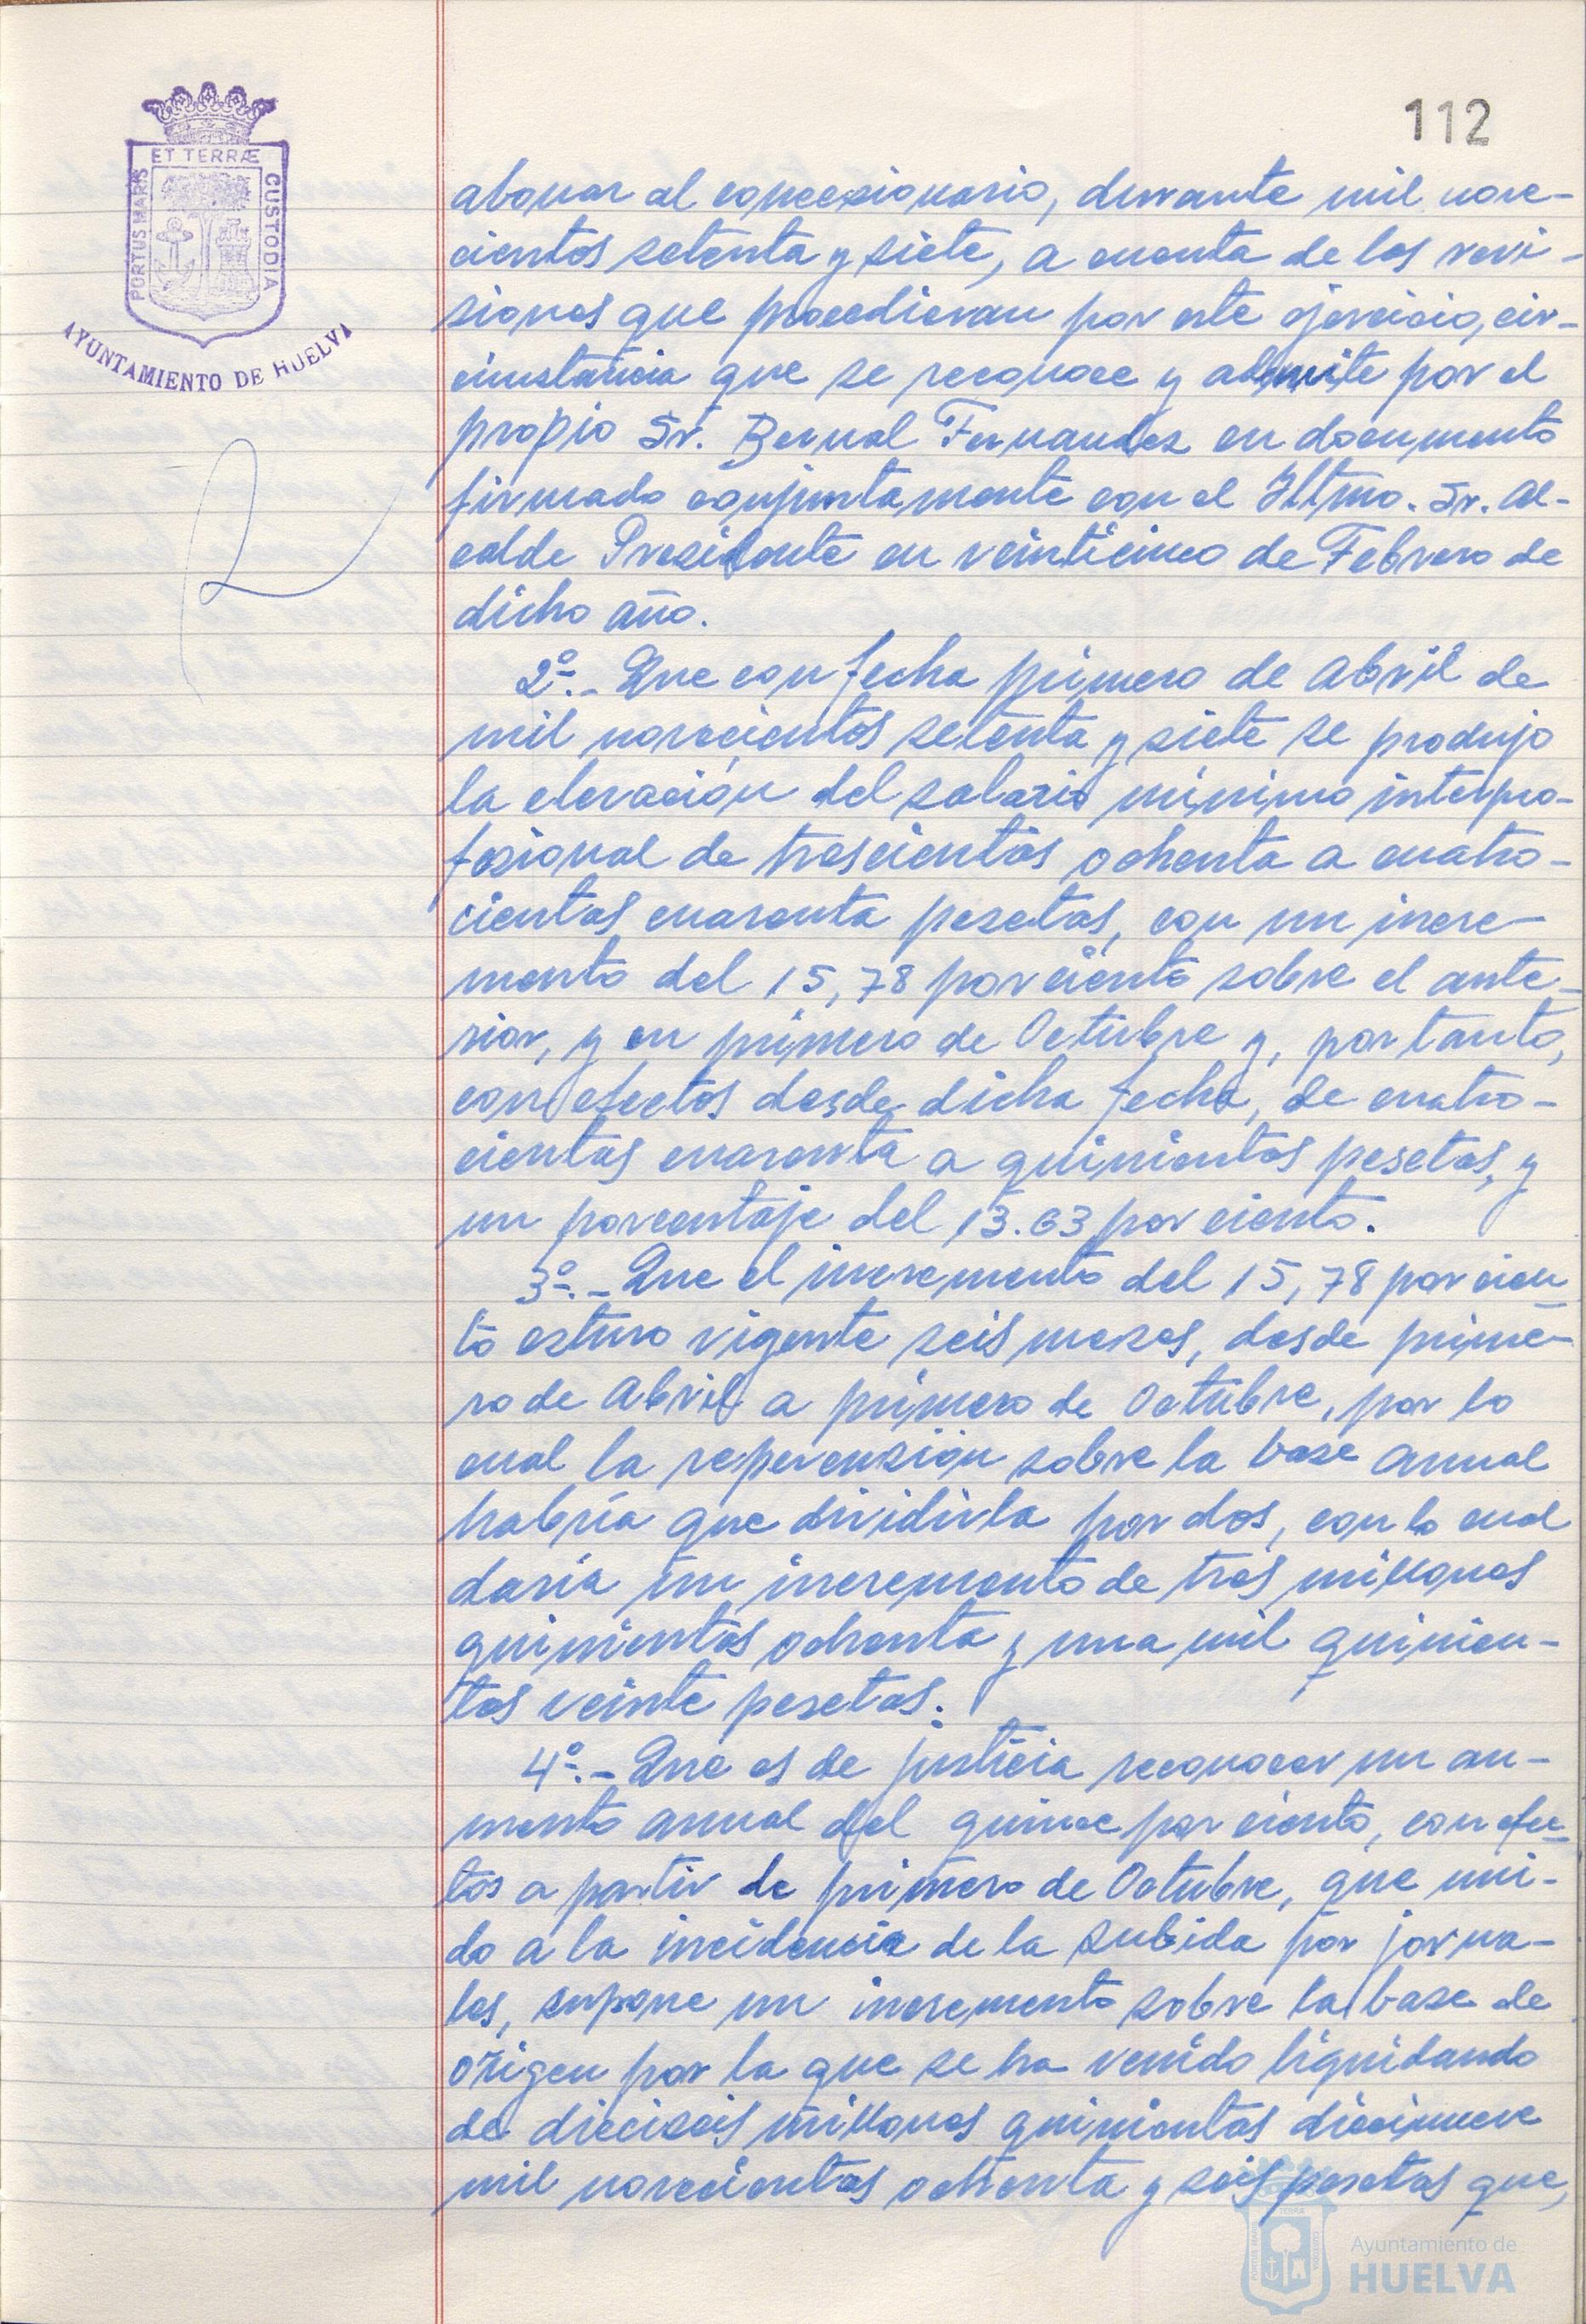 112
ET TERRÆ
PORTUS MARIS
CUSTODIA
AYUNTAMIENTO DE HUELVA
abonar al concesionario, durante mil nove-
cientos setenta y siete, a cuenta de las revi-
siones que procedieran por este ejercicio, cir-
cunstancia que se reconoce y admite por el
propio Sr. Bernal Fernandez en documento
firmado conjuntamente con el Iltmo. Sr. Al-
calde Presidente en veinticinco de Febrero de
dicho año.
2º.- Que con fecha primero de Abril de
mil novecientos setenta y siete se produjo
la elevación del salario mínimo interpro-
fesional de trescientas ochenta a cuatro-
cientas cuarenta pesetas, con un incre-
mento del 15,78 por ciento sobre el ante-
rior, y en primero de Octubre y, por tanto,
con efectos desde dicha fecha, de cuatro-
cientas cuarenta a quinientas pesetas, y
un porcentaje del 13.63 por ciento.
3º.- Que el incremento del 15,78 por cien
to estuvo vigente seis meses, desde prime-
ro de Abril a primero de Octubre, por lo
cual la repercusión sobre la base anual
habría que dividirla por dos, con lo cual
daría un incremento de tres millones
quinientas ochenta y una mil quinien-
tas veinte pesetas.
4º.- Que es de justicia reconocer un au-
mento anual del quince por ciento, con efec-
tos a partir de primero de Octubre, que uni-
do a la incidencia de la subida por jorna-
les, supone un incremento sobre la base de
origen por la que se ha venido liquidando
de dieciseis millones quinientas diecinueve
mil novecientas ochenta y seis pesetas que,
Ayuntamiento de
HUELVA